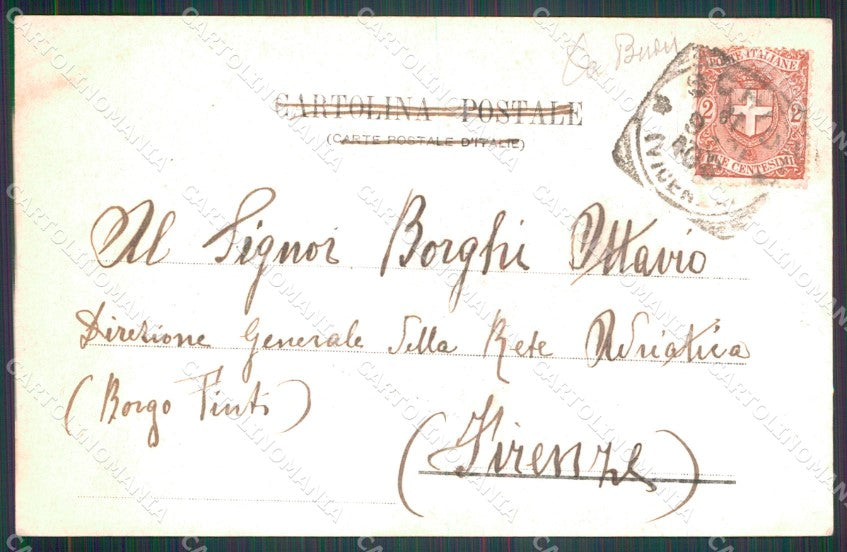 CARTOLINA POSTALE
(CARTE POSTALE D'ITALIE)
POSTE ITALIANE
2 2
DUE CENTESIMI
SCHIO
(VICENZA)
Al Signor Borghi Ottavio
Direzione Generale della Rete Adriatica
(Borgo Pinti)
(Firenze)
CARTOLINOMANIA